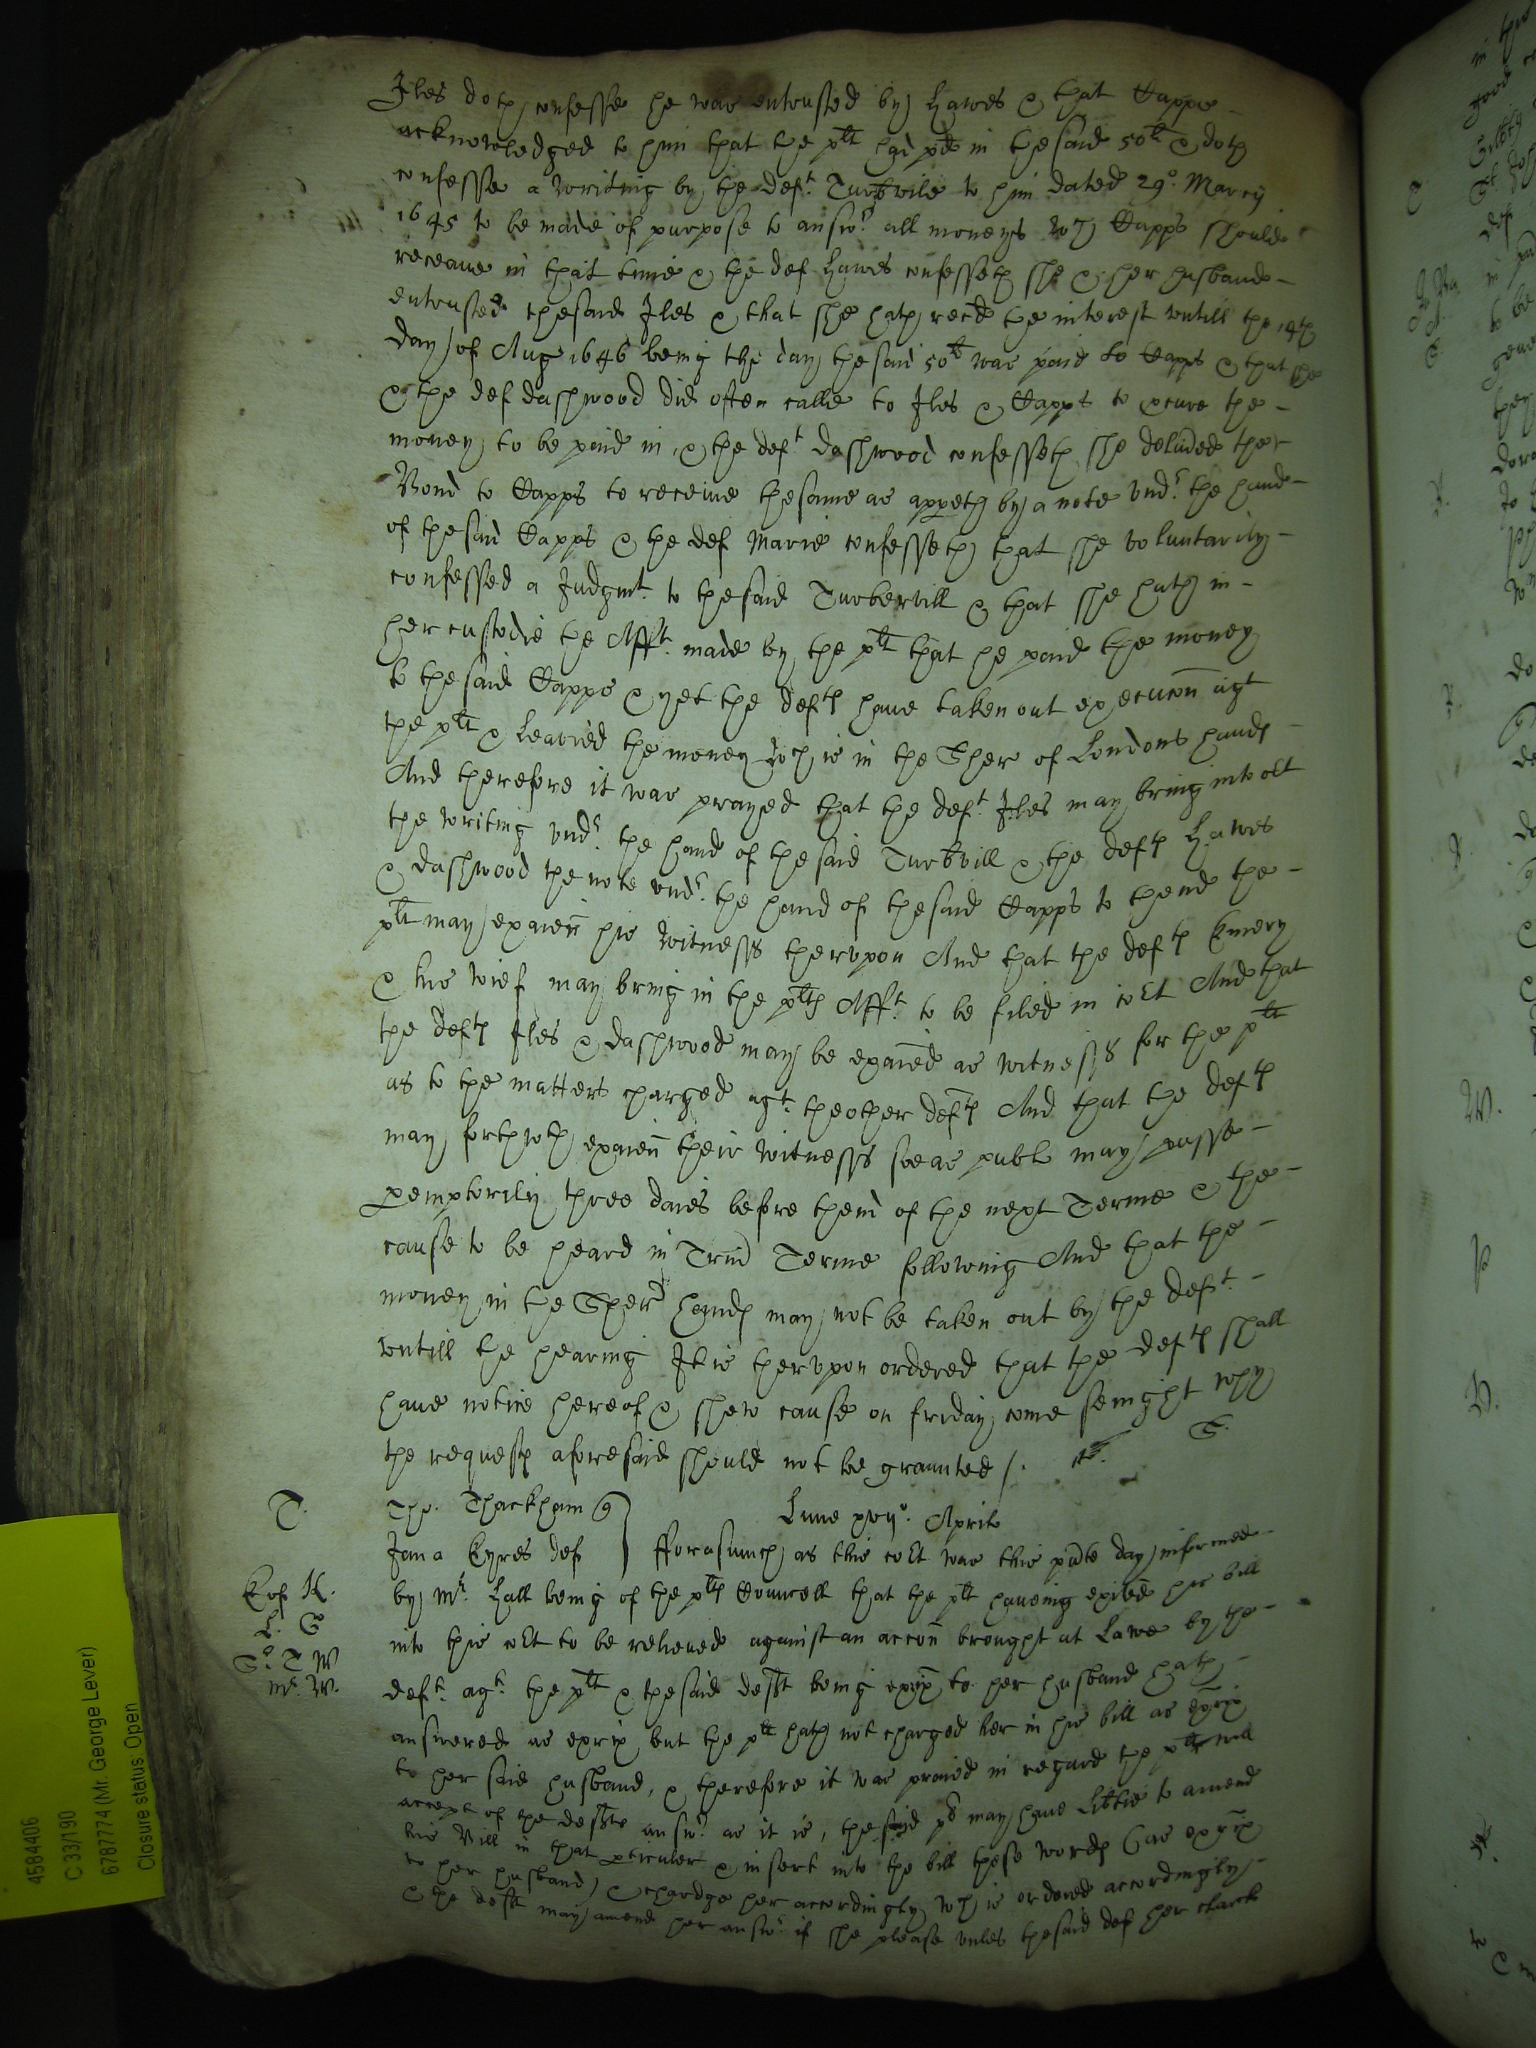 Iles doth confesse he was entrusted by Lawes & that Capps
acknowledged to him that the plt had pd in the said 50li & doth
confesse a writing by the deft. Turbvile to him dated 29o. March
1645 to be made of purpose to answr all moneys wch Capps should
receave in that time & the def Lawes confesseth she & her husband
entrusted the said Iles & that she hath recd the interest untill the 14th
day of Aug 1646 being the day the said 50li was paid to Capps & that she
& the def Dashwood did often calle to Iles & Capps to pcure the
money to be paid in, & the deft Dashwood confesseth she deliued the
Bond to Capps to receive the same as appeth by a note undr. the hand
of the said Capps & the def Marie confesseth that she voluntarily
confessed a Judgmt. to the said Turbervill & that she hath in
her custodie the Afft. made by the plt that he paid the money
to the said Capps & yet the defts have taken out execucon agt
the plt & leavied the money wch is in the Sher of Londons hands
And therefore it was prayed that the deft Iles may bring into Crt
the writing undr. the hand of the said Turbvill & the defts Lawes
& Dashwood the note undr. the hand of the said Capps to thend the
plt may examn his witnesss therupon And that the defts Emery
& his wief may bring in the plts Afft. to be filed in Crt And that
the defts Iles & Dashwood may be examed as witnesss for the plt
as to the matters charged agt. the other defts And that the defts
may forthwth examn their witnesss soe as publ may passe
pemptorily three daies before thend of the next Terme & the
cause to be heard in Trin Terme following And that the
money in the Sherr hands may not be taken out by the deft.
untill the hearing It is therupon ordered that the defts shall
have notice hereof & shew cause on friday come senight why
the requests aforesaid should not be graunted /. S.
T. Tho. Thackham q Lune xvijo. Aprilis
Jana Eyres def fforasmuch as this Crt was this pnte day informed
Exp K. by Mr. Hall being of the plts Councell that the plt haveing exited his bill
L. S into this Crt to be releived against an accon brought at Lawe by the
S. T W deft. agt. the plt & the said deft being exrix to her husband hath
Mr. W. answered as exrix but the plt hath not charged her in his bill as exrix
to her said husband, & therefore it was praied in regard the plt will
accept of the defts answr as it is, the said pl may have libtie to amend
his Bill in that pticuler & insert into the bill these words (as exrix
to her husband) & chardge her accordingly wch is ordered accordingly
& the deft may amend her answr if she please unles the said def her clark
4584406
C 33/190
6787774 (Mr. George Lever)
Closure status: Open